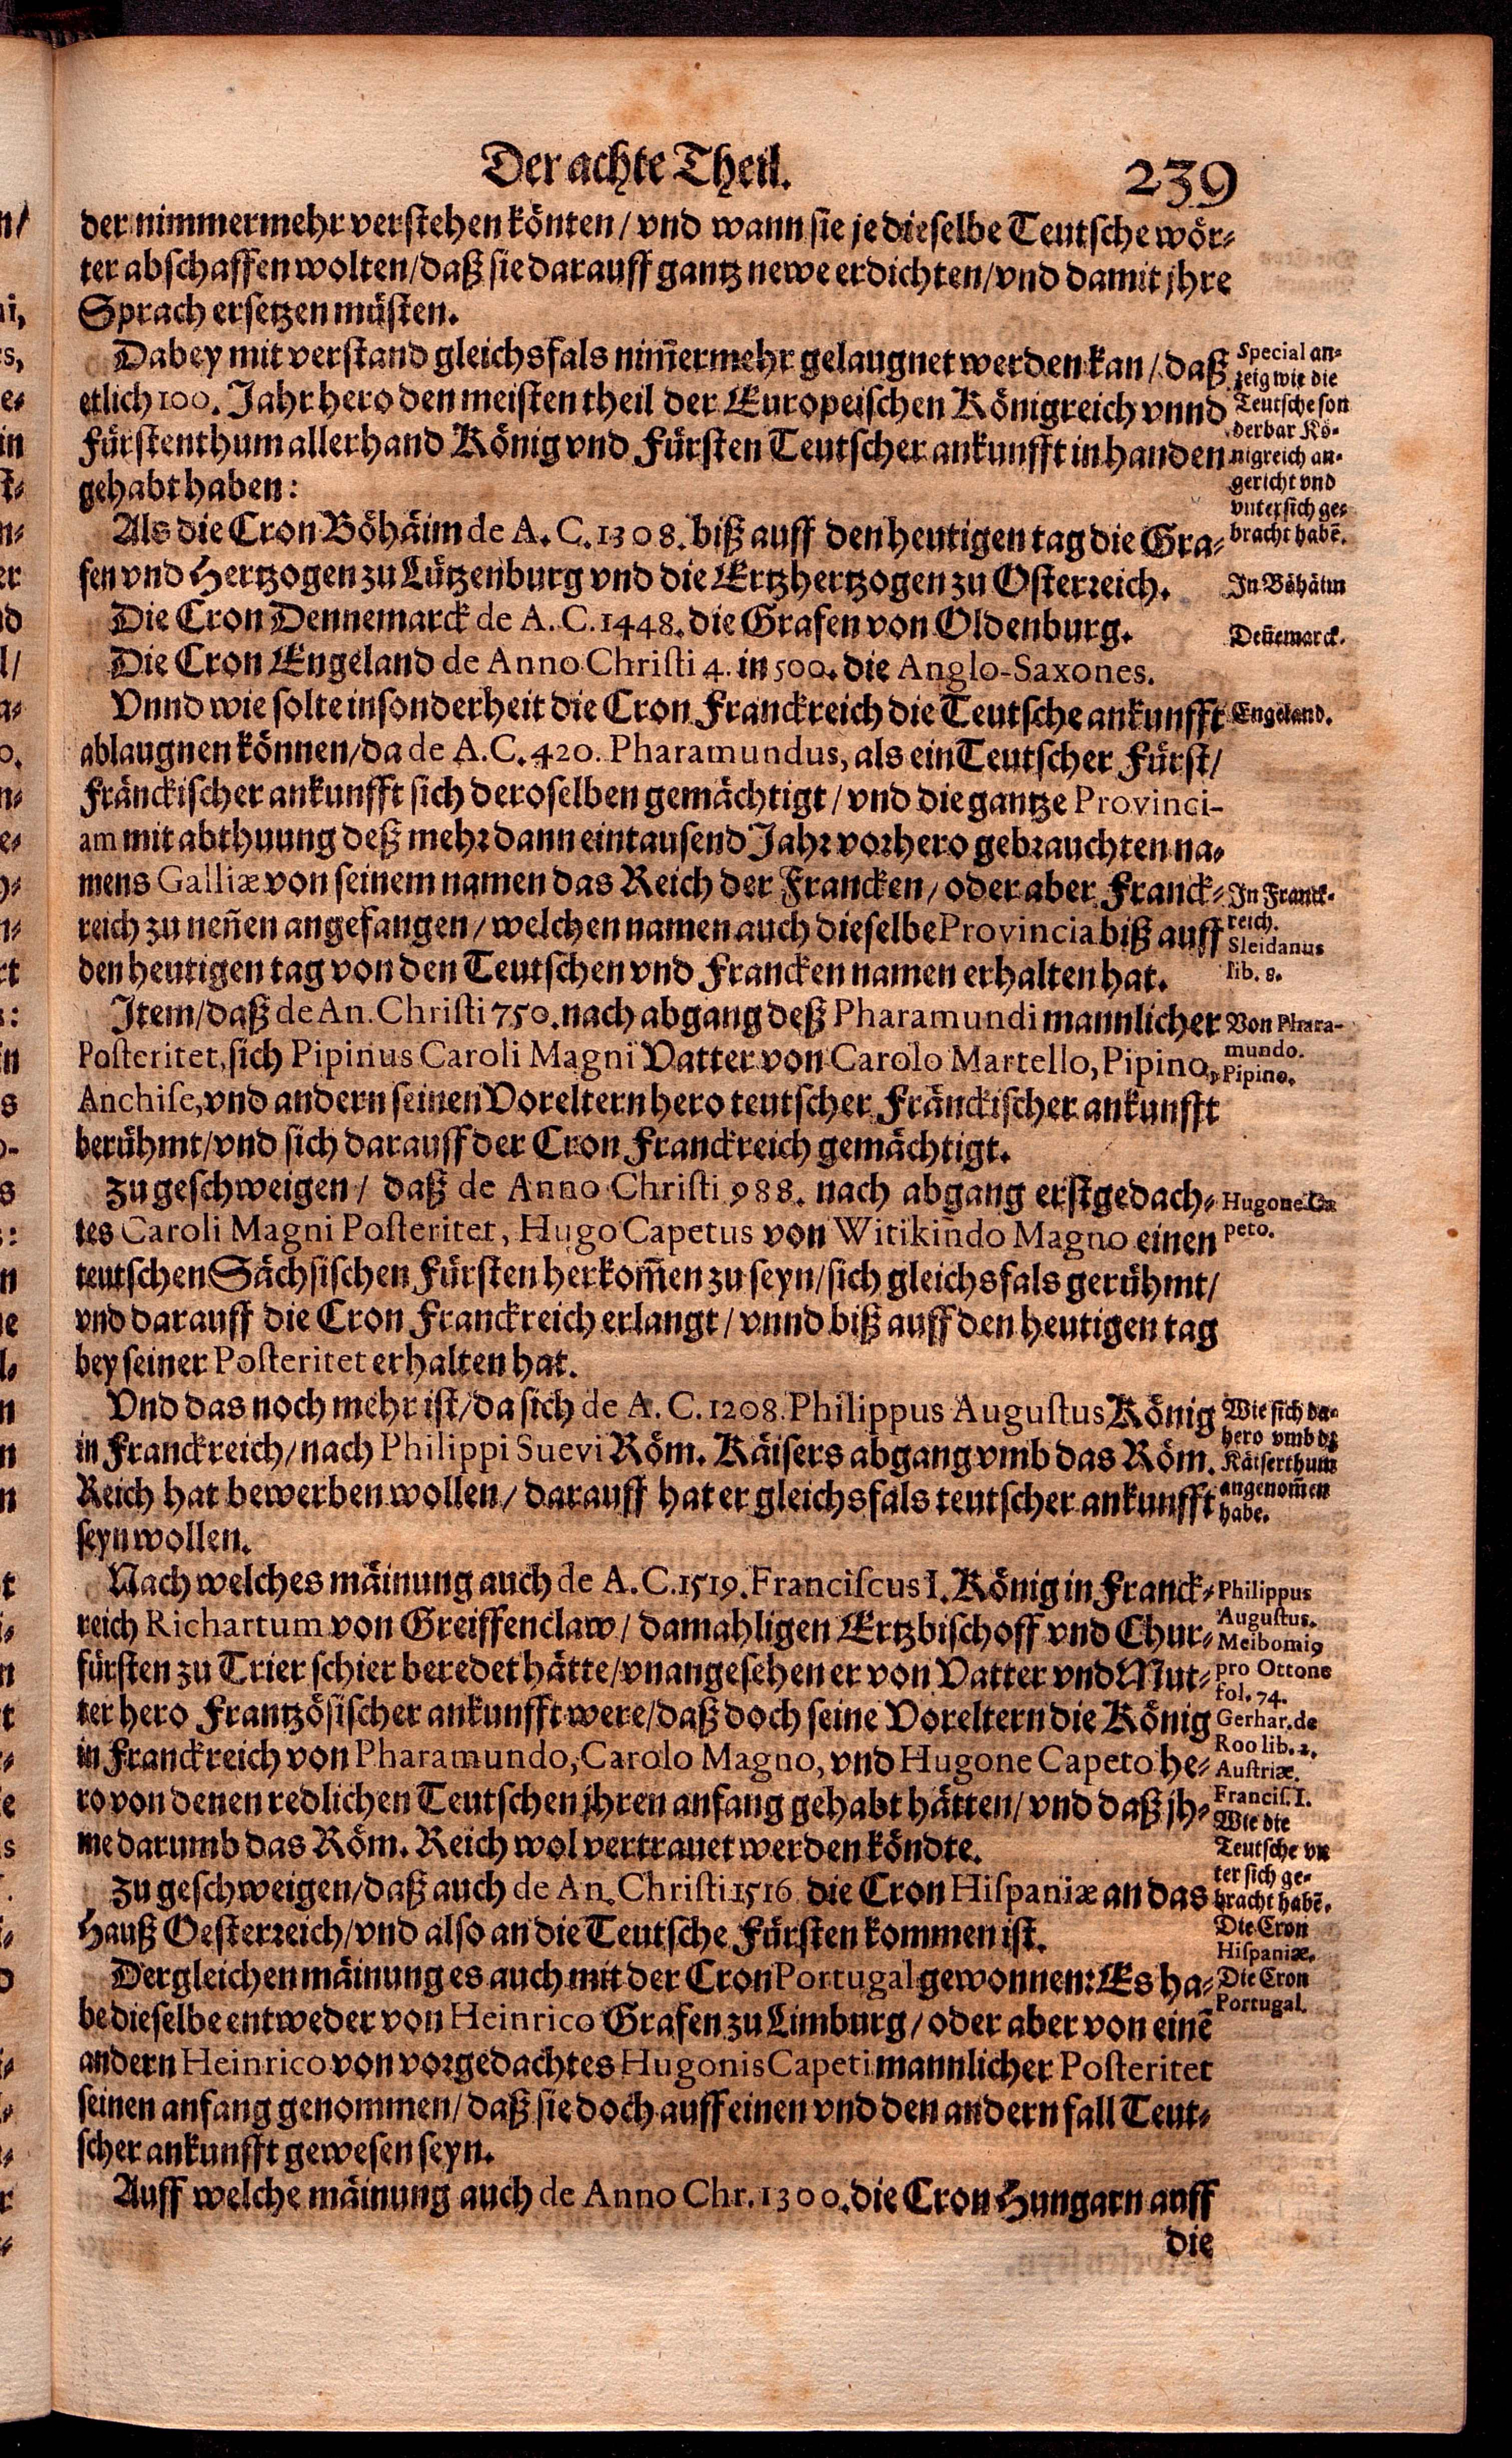 Der achte Theil. 239
der nimmermehr verstehen könten / vnd wann sie je dieselbe Teutsche wör-
ter abschaffen wolten / daß sie darauff gantz newe erdichten / vnd damit jhre
Sprach ersetzen müsten.
Dabey mit verstand gleichsfals nim̃ermehr gelaugnet werden kan / daß
etlich 100. Jahr hero den meisten theil der Europeischen Königreich vnnd
Fürstenthum allerhand König vnd Fürsten Teutscher ankunfft in handen
gehabt haben:
Special an-
zeig wie die
Teutsche son
derbar Kö-
nigreich an-
gericht vnd
vnter sich ge-
bracht habẽ.
Als die Cron Böhäim de A. C. 1308. biß auff den heutigen tag die Gra-
fen vnd Hertzogen zu Lützenburg vnd die Ertzhertzogen zu Osterreich.
In Böhäim
Die Cron Dennemarck de A. C. 1448. die Grafen von Oldenburg.
Deñemarck.
Die Cron Engeland de Anno Christi 4. in 500. die Anglo-Saxones.
Vnnd wie solte insonderheit die Cron Franckreich die Teutsche ankunfft
Engeland.
ablaugnen können / da de A. C. 420. Pharamundus, als ein Teutscher Fürst /
Fränckischer ankunfft sich deroselben gemächtigt / vnd die gantze Provinci-
am mit abthuung deß mehr dann ein tausend Jahr vorhero gebrauchten na-
mens Galliæ von seinem namen das Reich der Francken / oder aber Franck-
reich zu neñen angefangen / welchen namen auch dieselbe Provincia biß auff
den heutigen tag von den Teutschen vnd Francken namen erhalten hat.
In Franck-
reich.
Sleidanus
lib. 8.
Item / daß de An. Christi 750. nach abgang deß Pharamundi mannlicher
Posteritet, sich Pipinus Caroli Magni Vatter von Carolo Martello, Pipino,
Anchise, vnd andern seinen Voreltern hero teutscher Fränckischer ankunfft
berühmt / vnd sich darauff der Cron Franckreich gemächtigt.
Von Phara-
mundo.
Pipino.
Zu geschweigen / daß de Anno Christi 988. nach abgang erstgedach-
tes Caroli Magni Posteritet, Hugo Capetus von Witikindo Magno einen
teutschen Sächsischen Fürsten herkom̃en zu seyn / sich gleichsfals gerühmt /
vnd darauff die Cron Franckreich erlangt / vnnd biß auff den heutigen tag
bey seiner Posteritet erhalten hat.
Hugone Ca
peto.
Vnd das noch mehr ist / da sich de A. C. 1208. Philippus Augustus König
in Franckreich / nach Philippi Suevi Röm. Käisers abgang vmb das Röm.
Reich hat bewerben wollen / darauff hat er gleichsfals teutscher ankunfft
seyn wollen.
Wie sich da-
hero vmb dz
Käiserthum
angenom̃en
habe.
Nach welches mäinung auch de A. C. 1519. Franciscus I. König in Franck-
reich Richartum von Greiffenclaw / damahligen Ertzbischoff vnd Chur-
fürsten zu Trier schier beredet hätte / vnangesehen er von Vatter vnd Mut-
ter hero Frantzösischer ankunfft were / daß doch seine Voreltern die König
in Franckreich von Pharamundo, Carolo Magno, vnd Hugone Capeto he-
ro von denen redlichen Teutschen jhren anfang gehabt hätten / vnd daß jh-
me darumb das Röm. Reich wol vertrauet werden köndte.
Philippus
Augustus.
Meibomiꝯ
pro Ottone
fol. 74.
Gerhar. de
Roo lib. 1.
Austriæ.
Francis. I.
Zu geschweigen / daß auch de An. Christi 1516 die Cron Hispaniæ an das
Hauß Oesterreich / vnd also an die Teutsche Fürsten kommen ist.
Wie die
Teutsche vn
ter sich ge-
bracht habẽ.
Die Cron
Hispaniæ.
Dergleichen mäinung es auch mit der Cron Portugal gewonnen: Es ha-
be dieselbe entweder von Heinrico Grafen zu Limburg / oder aber von einẽ
andern Heinrico von vorgedachtes Hugonis Capeti mannlicher Posteritet
seinen anfang genommen / daß sie doch auff einen vnd den andern fall Teut-
scher ankunfft gewesen seyn.
Die Cron
Portugal.
Auff welche mäinung auch de Anno Chr. 1300. die Cron Hungarn auff
die